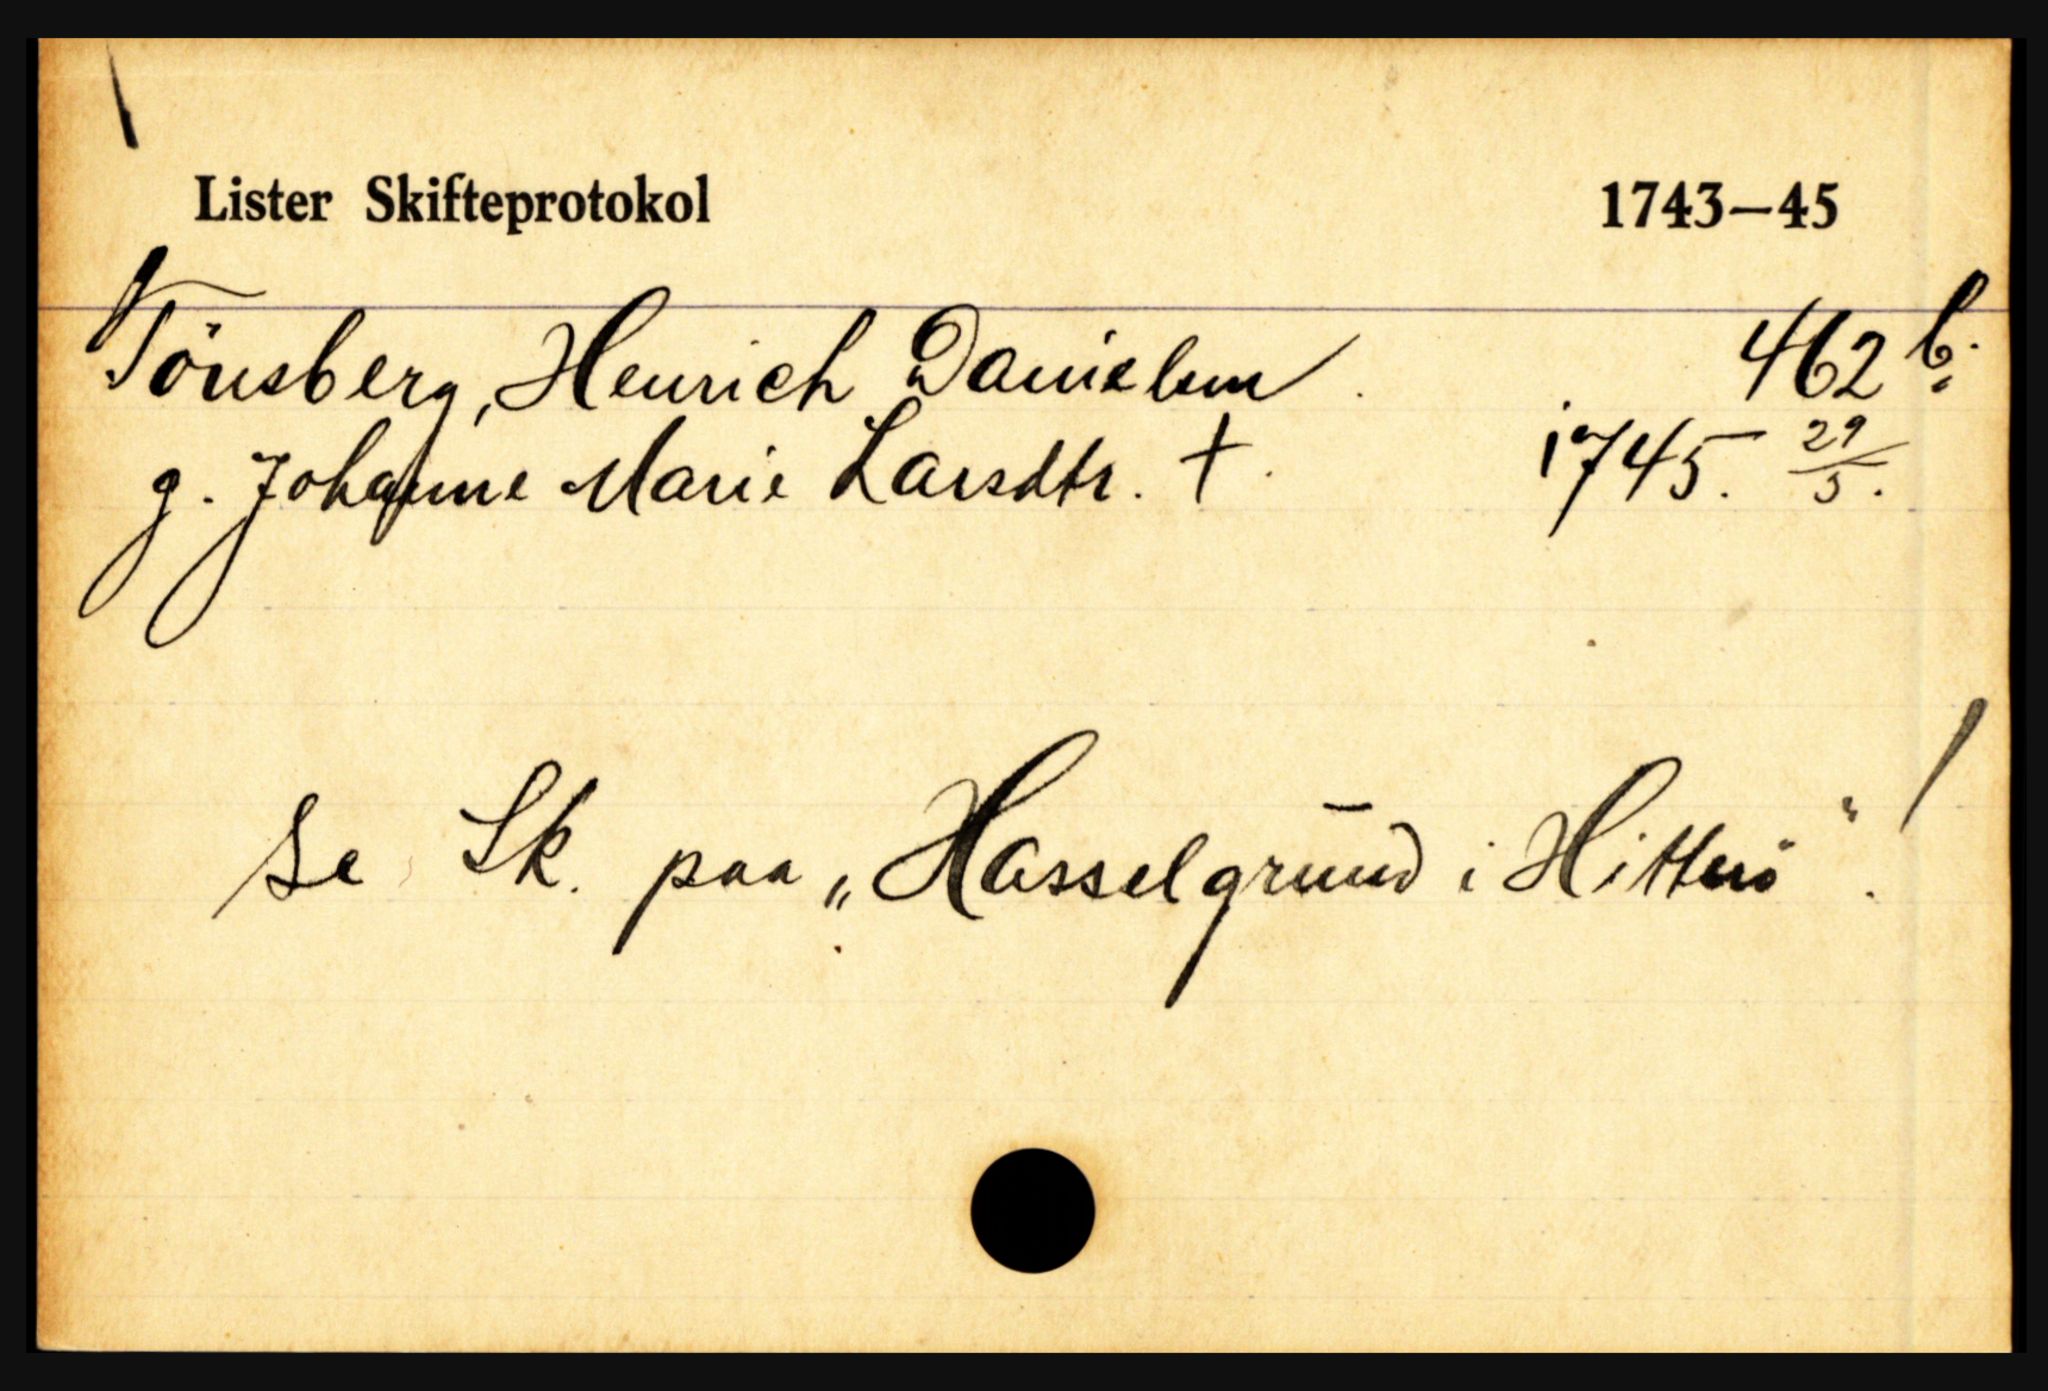 Lister Skifteprotokol 1743–45
Tönsberg, Henrich Danielsen. 462 b.
g. Johanne Marie Larsdtr. †. 1745. 29/5.
se Sk. paa „Hasselgrund i Hitterö".